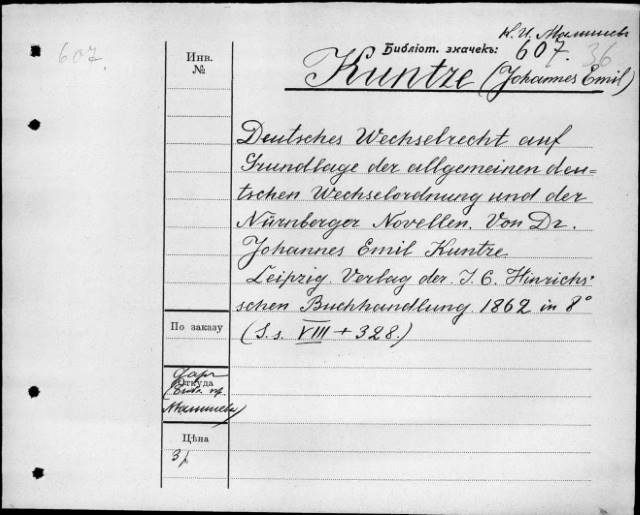 К. И. Малышевъ
Библіот. значекъ: 607. 36
607.
Инв.
№
Kuntze (Johannes Emil)
Deutsches Wechselrecht auf
Grundlage der allgemeinen deu=
tschen Wechselordnung und der
Nürnberger Novellen. Von Dr.
Johannes Emil Kuntze
Leipzig. Verlag der J. C. Hinrichs'
schen Buchhandlung. 1862 in 8°
(S.s. VIII + 328.)
По заказу
Даръ
Откуда
Малышева)
Цѣна
3 р